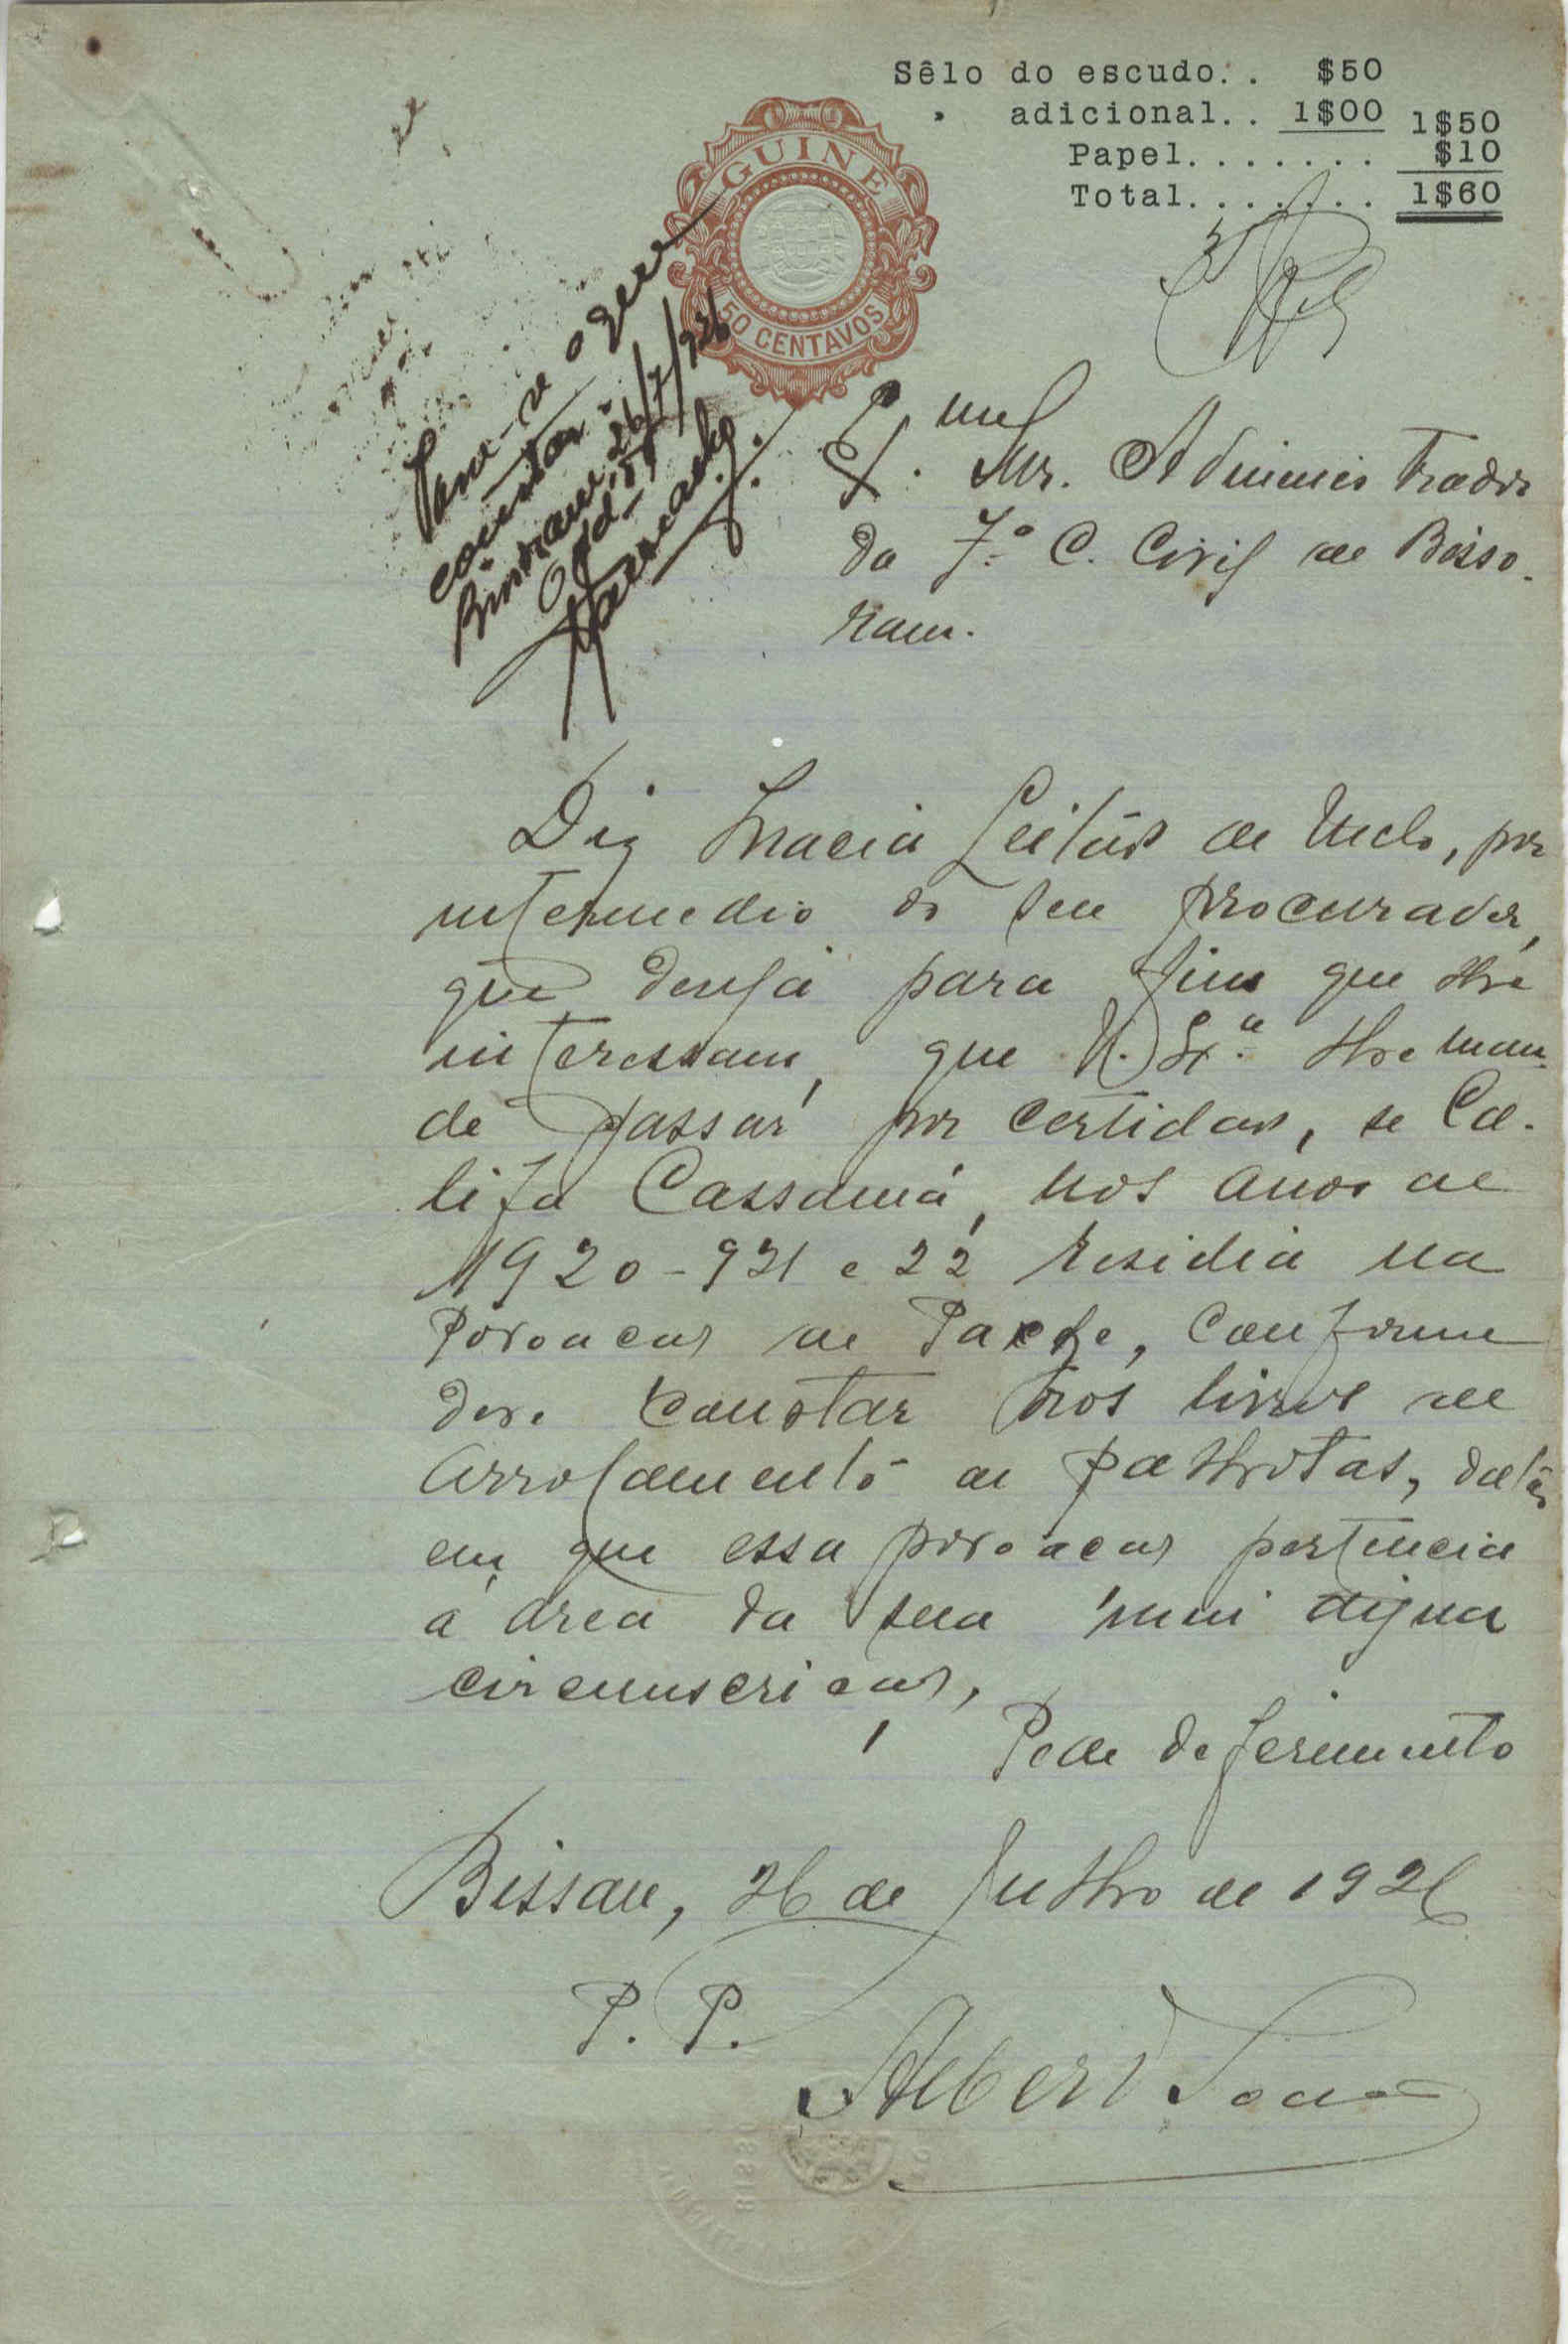 Sêlo do escudo.. $50
" adicional.. 1$00 1$50
Papel....... $10
Total....... 1$60
GUINE
50 CENTAVOS
Passe-se o que
constar.
Bissoram, 26/7/926
O Ad.or
Ex.mo Snr. Administrador
da 7.ª C. Civil de Bisso-
ram.
Diz Inacia Leitão de Melo, por
intermedio do seu procurador,
que deseja para fins que lhe
interessam, que V. Ex.ª lhe man-
de passar por certidão, se Ca-
lifa Cassamá, nos anos de
1920-921 e 22 residia na
Povoação de Patche, conforme
deve constar nos livros de
Arrolamento de palhotas, datas
em que essa povoação pertencia
á área da sua mui digna
circunscrição,
Pede deferimento
Bissau, 26 de Julho de 1926
P. P.
Albert